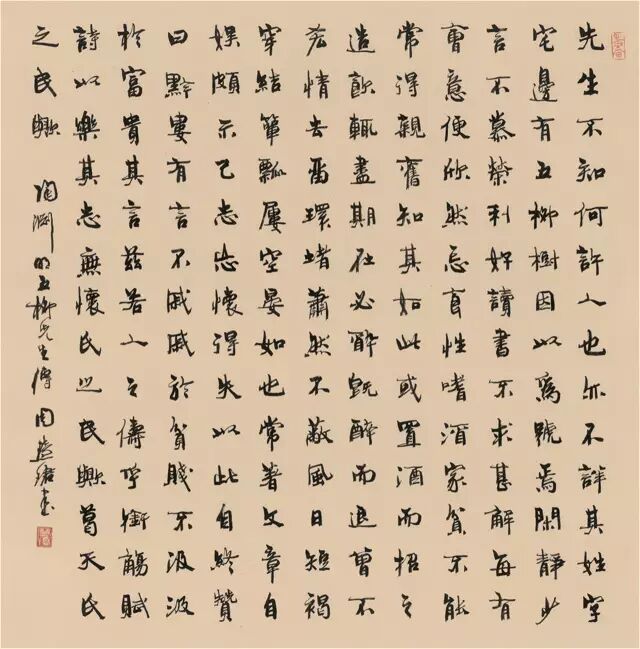 先生不知何許人也亦不詳其姓字
宅邊有五柳樹因以為號焉閑靜少
言不慕榮利好讀書不求甚解每有
會意便欣然忘食性嗜酒家貧不能
常得親舊知其如此或置酒而招之
造飲輒盡期在必醉既醉而退曾不
吝情去留環堵蕭然不蔽風日短褐
穿結簞瓢屢空晏如也常著文章自
娛頗示己志忘懷得失以此自終贊
曰黔婁有言不戚戚於貧賤不汲汲
於富貴其言茲若人之儔乎銜觴賦
詩以樂其志無懷氏之民歟葛天氏
之民歟 陶淵明五柳先生傳 周 書